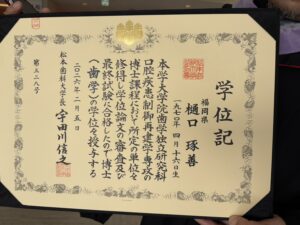 学位記
福岡県
樋口 琢善
一九七〇年 四月 十六日生
本学大学院歯学独立研究科
口腔疾患制御再建学専攻の
博士課程において所定の単位を
修得し学位論文の審査及び
最終試験に合格したので博士
(歯学)の学位を授与する
二〇二六年 二月 五日
松本歯科大学長 宇田川信之